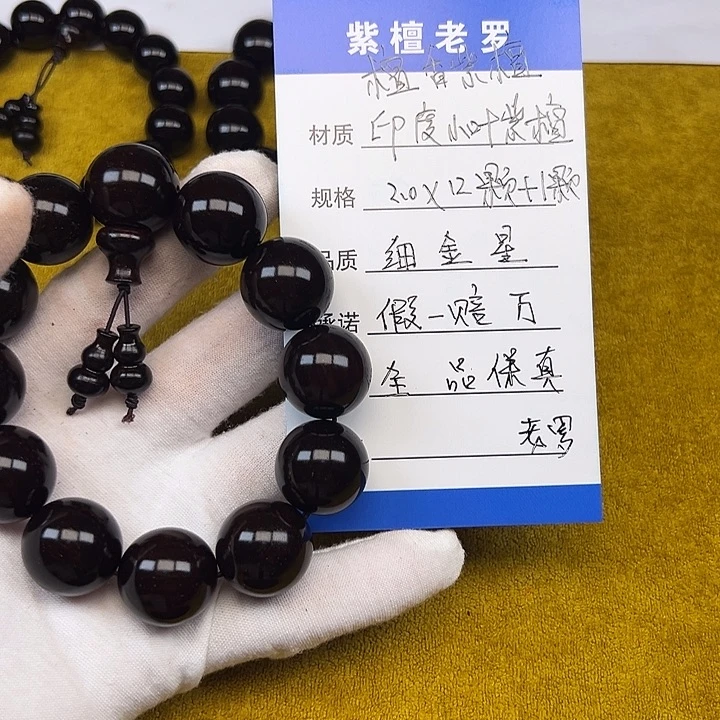 紫檀老罗
檀香紫檀
材质 印度小叶紫檀
规格 2.0×12颗+1颗
品质 细金星
承诺 假一赔万
全品保真
老罗